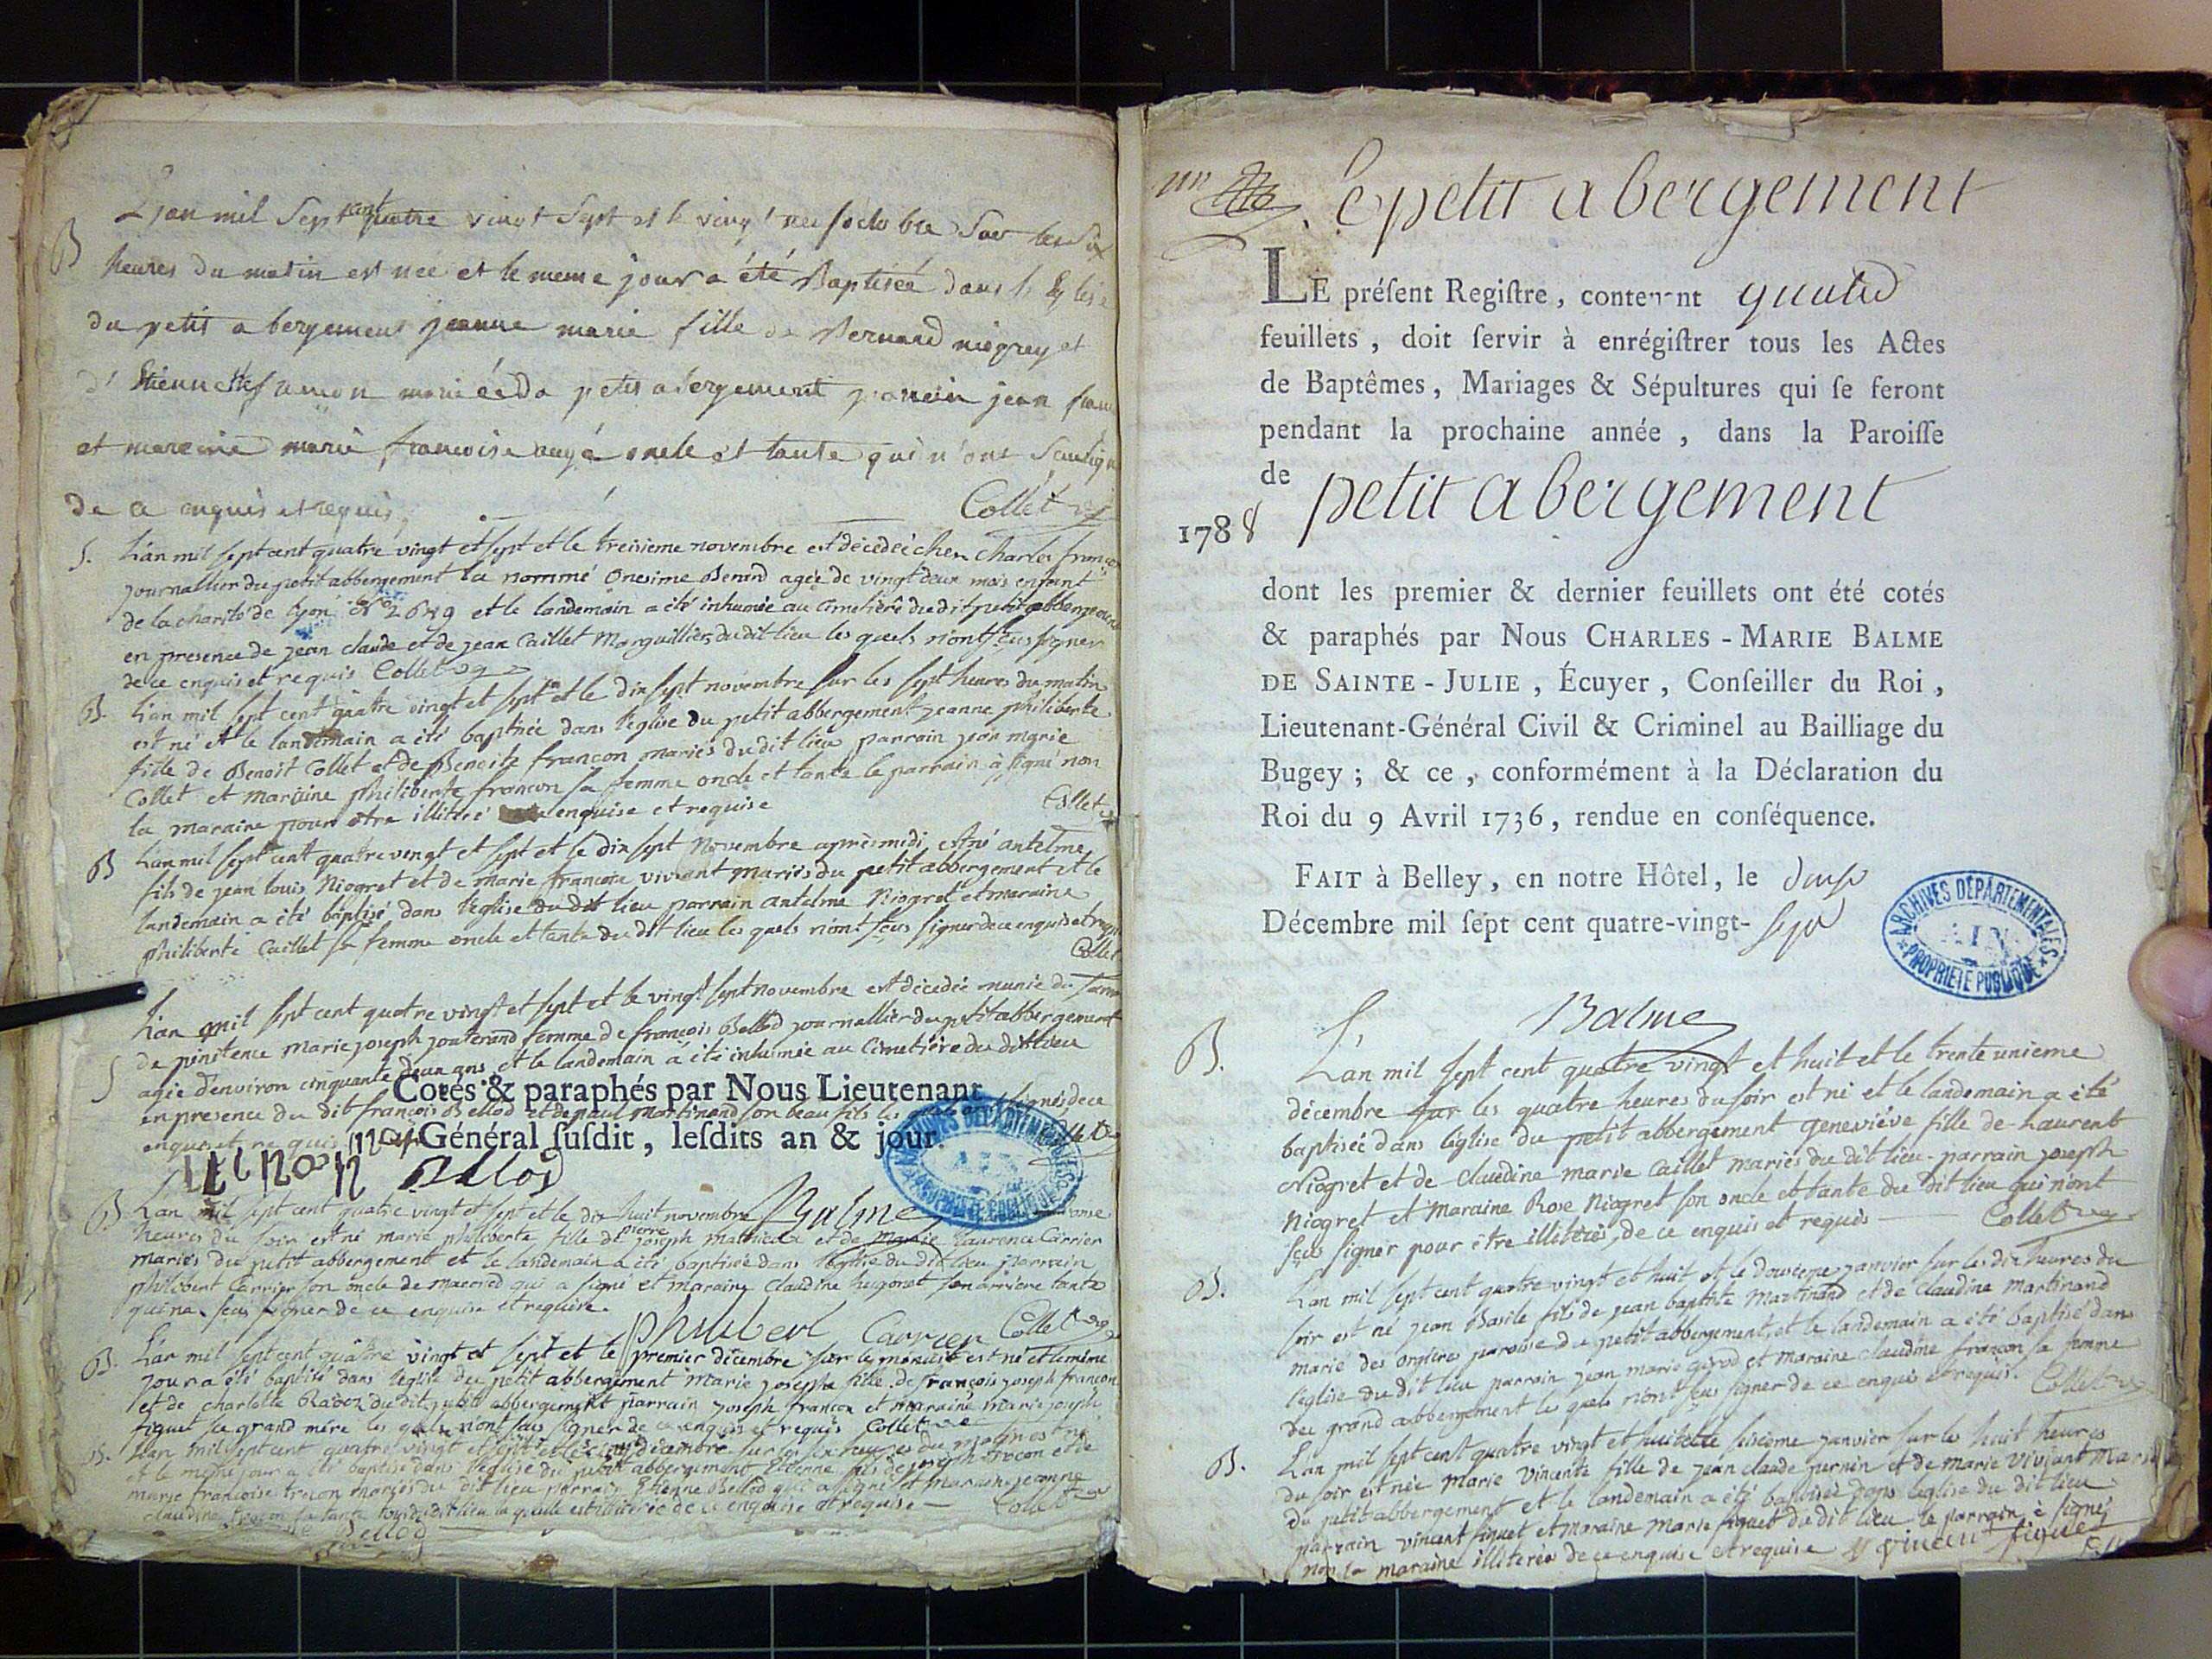 L'an mil Sept cent quatre vingt Sept et le vingt neuf octobre Sur les dix
B heures du matin est née et le meme jour a été Baptisée dans l'Eglise
du petit abergement jeanne marie fille de Bernard niogrey et
d'Etiennette mariée du petit abergement parrein jean
et mareine marie francoise oncle et tante qui n'ont Scu sign
de ce enquis et requis. Collet
S. L'an mil sept cent quatre vingt et sept et le treisieme novembre est décedéé chez Charles françon
journallier du petit abbergement la nommé Onesime Benard agée de vingt deux mois enfant
de la charité de lyon N° et le landemain a été inhumée au Cimetière du dit petit abbergement
en presence de jean claude et de jean Caillet Marguilliers du dit lieu les quels n'ont sçus signer
de ce enquis et requis Collet
B. L'an mil sept cent quatre vingt et sept et le dix sept novembre sur les sept heures du matin
est né et le landemain a été baptisée dans l'église du petit abbergement jeanne philiberte
fille de Benoit Collet et de Benoite françon mariés du dit lieu parrain jean marie
Collet et maraine philiberte françon sa femme oncle et tante le parrain à signé non
la maraine pour être illitéré enquise et requise Collet
B L'an mil sept cent quatre vingt et sept et le dix sept Novembre après midi est né antelme
fils de jean louis Niogret et de marie françon vivant mariés du petit abbergement et le
landemain a été baptisé dans l'église du dit lieu parrain antelme Niogret et maraine
philiberte Caillet sa femme oncle et tante du dit lieu les quels n'ont sçus signer de ce enquis et requis
Collet
L'an mil sept cent quatre vingt et sept et le vingt sept novembre est décedée munie du
S de pénitence marie joseph femme de françois Bellod journallier du petit abbergement
agée d'environ cinquante deux ans et le landemain a été inhumée au Cimetière du dit lieu
Cotés & paraphés par Nous Lieutenant
en presence du dit françois Bellod et de paul martinand son beau fils les signés de ce
enquis et requis
Général ſuſdit, leſdits an & jour.
ARCHIVES DÉPARTEMENTALES AIN PROPRIÉTÉ PUBLIQUE
Bellod
Balme
B L'an mil sept cent quatre vingt et sept et le dix huit novembre
heures du soir est né marie philiberte fille de pierre joseph et de marie laurence Carrier
mariés du petit abbergement et le landemain a été baptisée dans l'église du dit lieu parrain
philibert Carrier son oncle de qui a signé et maraine Claudine hugonet son arriere tante
qui na sçus signer de ce enquise et requise.
philibert Carrier Collet
B. L'an mil sept cent quatre vingt et sept et le premier décembre sur le est né et le même
jour a été baptisé dans l'église du petit abbergement Marie josephe fille de françois joseph françon
et de charlotte du dit petit abbergement parrain joseph françon et maraine marie joseph
figuet sa grand mére les quels n'ont sçus signer de ce enquis et requis Collet
B. L'an mil sept cent quatre vingt et sept et le décembre sur les heures du matin est né
et le même jour a été baptisé dans l'église du petit abbergement Etienne fils de joseph et de
marie françoise mariés du dit lieu parrain Etienne Bellod qui a signé et maraine jeanne
claudine sa tante du dit lieu la quelle est de ce enquise et requise Collet
Bellod
un
Le petit abergement
LE préſent Regiſtre, contenant quatre
feuillets, doit ſervir à enrégiſtrer tous les Actes
de Baptêmes, Mariages & Sépultures qui ſe feront
pendant la prochaine année, dans la Paroiſſe
de petit abergement
1788
dont les premier & dernier feuillets ont été cotés
& paraphés par Nous CHARLES-MARIE BALME
DE SAINTE-JULIE, Écuyer, Conſeiller du Roi,
Lieutenant-Général Civil & Criminel au Bailliage du
Bugey; & ce, conformément à la Déclaration du
Roi du 9 Avril 1736, rendue en conſéquence.
FAIT à Belley, en notre Hôtel, le douse
Décembre mil ſept cent quatre-vingt-sept
ARCHIVES DÉPARTEMENTALES AIN PROPRIÉTÉ PUBLIQUE
Balme
B. L'an mil sept cent quatre vingt et huit et le trente unieme
décembre sur les quatre heures du soir est né et le landemain a été
baptisée dans l'église du petit abbergement geneviéve fille de laurent
Niogret et de Claudine marie Caillet mariés du dit lieu parrain joseph
Niogret et Maraine Rose Niogret son oncle et tante du dit lieu qui n'ont
sçus signer pour être illitérés, de ce enquis et requis Collet
B. L'an mil sept cent quatre vingt et huit et le dousieme janvier sur les dix heures du
soir est né jean Basile fils de jean baptiste Martinand et de claudine martinand
marié des paroisse du petit abbergement, et le landemain a été baptisé dans
l'église du dit lieu parrain jean marie et maraine claudine françon sa femme
du grand abbergement les quels n'ont sçus signer de ce enquis et requis. Collet
B. L'an mil sept cent quatre vingt et huit et le seisieme janvier sur les huit heures
du soir est née Marie Vincente fille de jean claude pernin et de marie Viviant Mariés
du petit abbergement et le landemain a été baptisée dans l'église du dit lieu
parrain vincent figuet et maraine Marie figuet du dit lieu le parrain à signé
non la maraine illiterée de ce enquise et requise vincent figuet